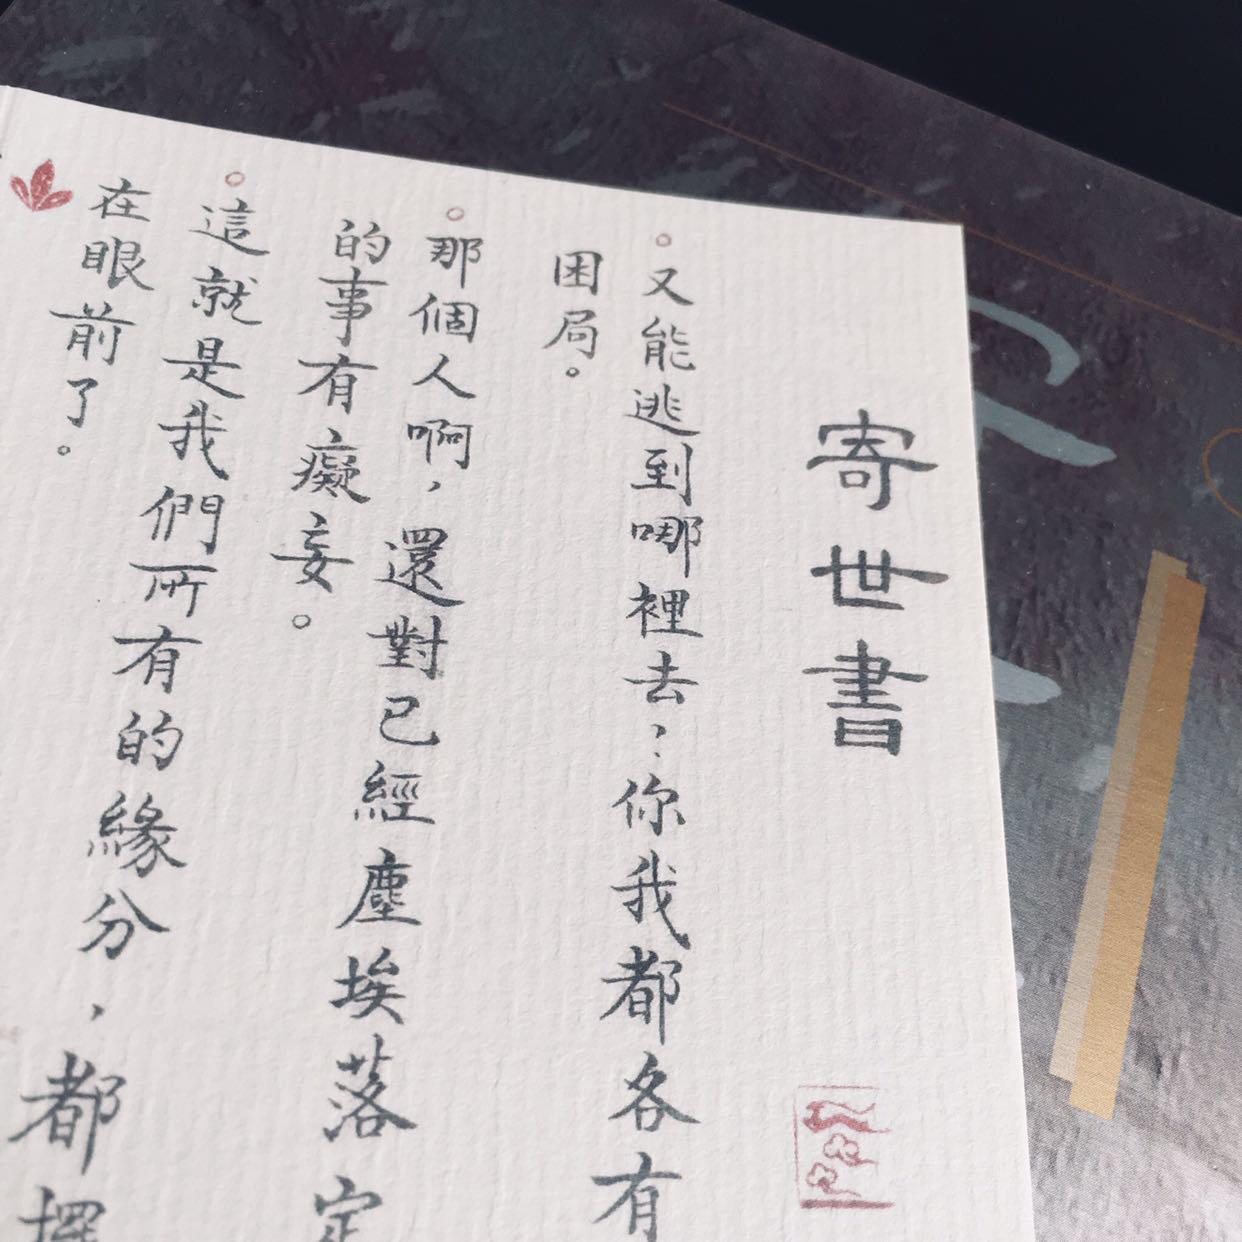 寄世書
又能逃到哪裡去，你我都各有
困局。
那個人啊，還對已經塵埃落定
的事有癡妄。
這就是我們所有的緣分，都擺
在眼前了。